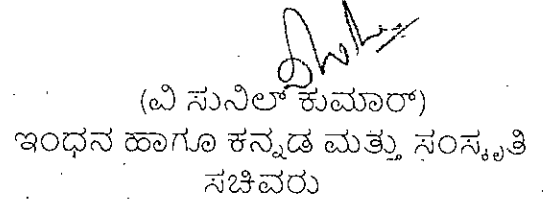 (ವಿ ಸುನಿಲ್ ಕುಮಾರ್)
ಇಂಧನ ಹಾಗೂ ಕನ್ನಡ ಮತ್ತು ಸಂಸ್ಕೃತಿ
ಸಚಿವರು